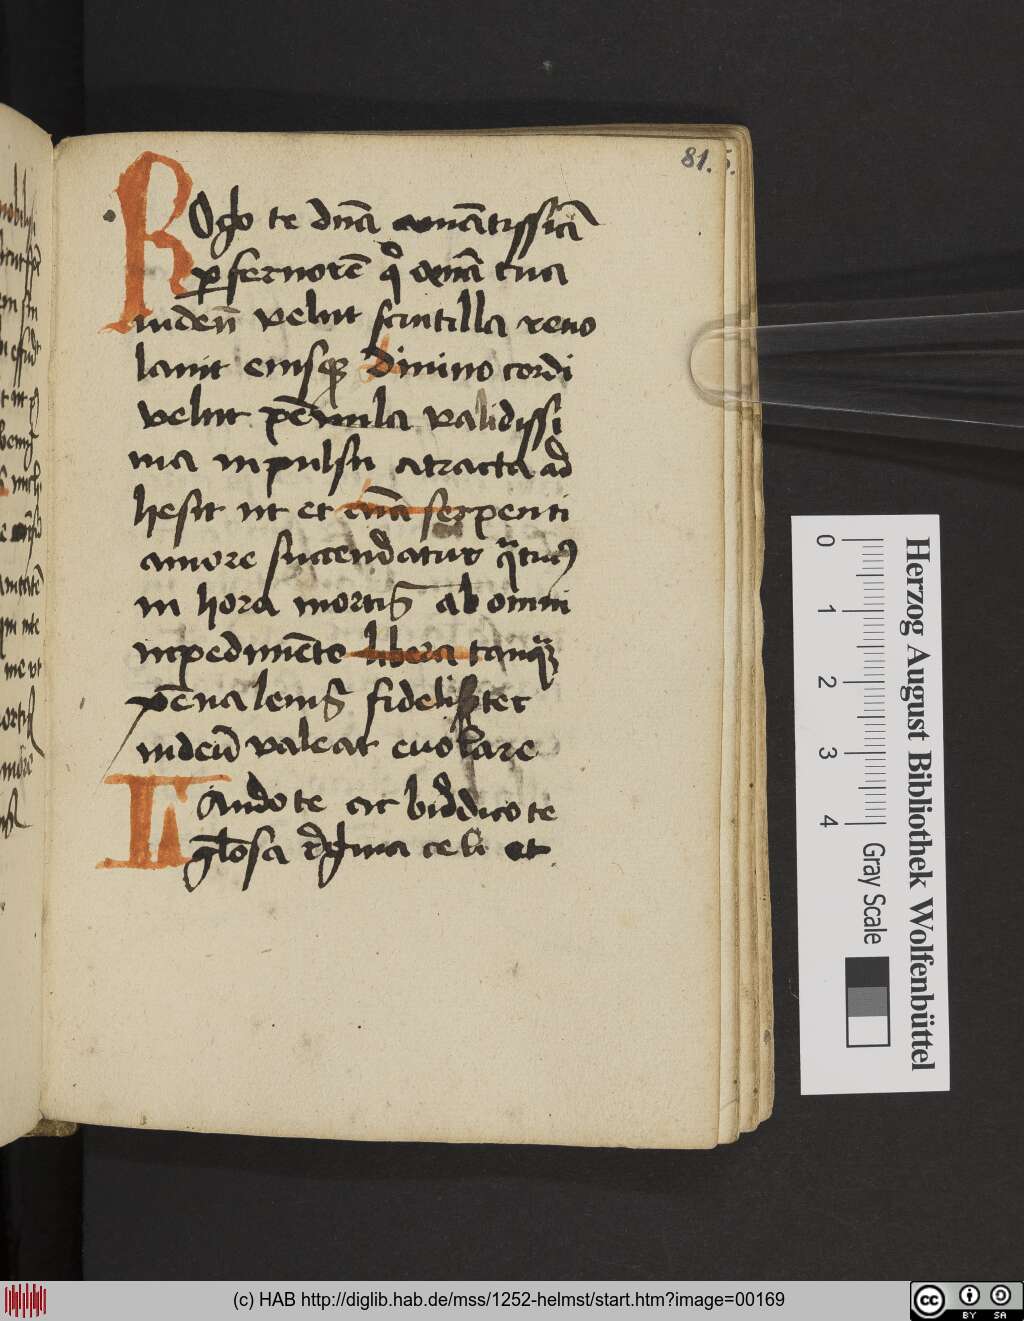 81.
ROgo te dn̄a amātissīa
ꝑ feruorē qͦ aīa tua
in deū velut scintilla reuo
lauit eiusqꝫ diuino cordi
velut pēnula validissi
ma inpulsu atracta ad
hesit ut et aīa serpenti
amore succendatur qͣtinꝰ
in hora mortis ab omni
inpedimēto libera tanqͣꝫ
pēna leuis fideliter
in deū valeat euolare
LAudo te ac bn̄dico te
gl̄osa regina celi et
0
1
2
3
4
Gray Scale
Herzog August Bibliothek Wolfenbüttel
(c) HAB http://diglib.hab.de/mss/1252-helmst/start.htm?image=00169
cc BY SA